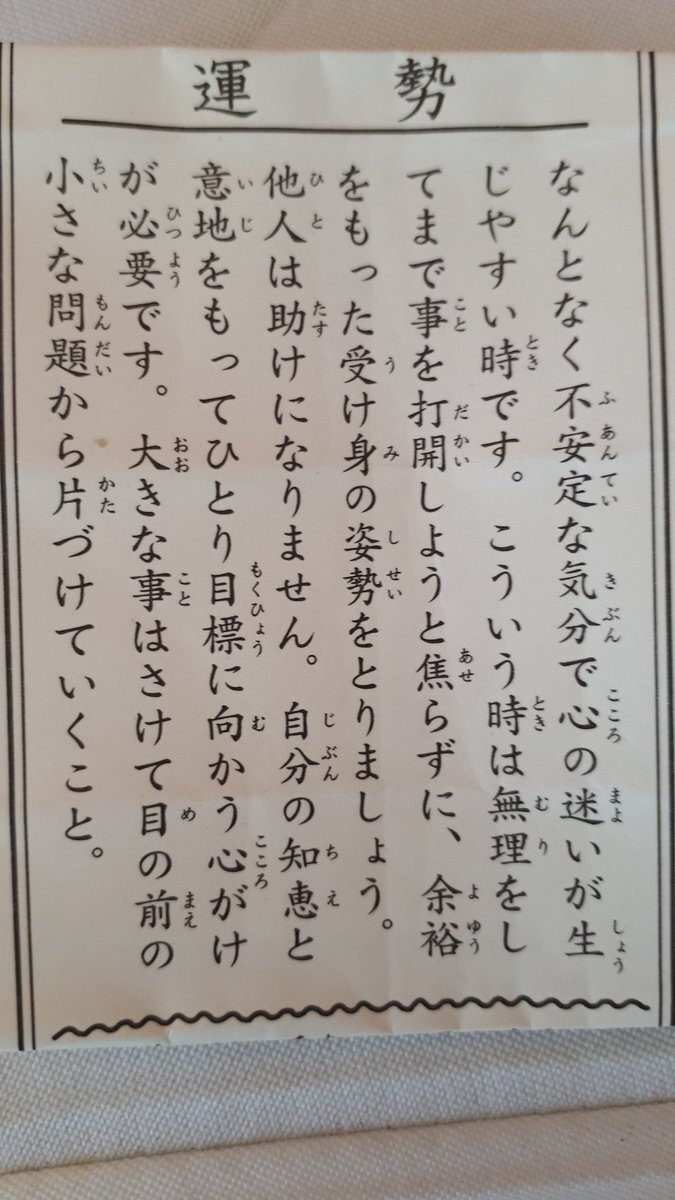 運勢
なんとなく不安定な気分で心の迷いが生
じやすい時です。こういう時は無理をし
てまで事を打開しようと焦らずに、余裕
をもった受け身の姿勢をとりましょう。
他人は助けになりません。自分の知恵と
意地をもってひとり目標に向かう心がけ
が必要です。大きな事はさけて目の前の
小さな問題から片づけていくこと。